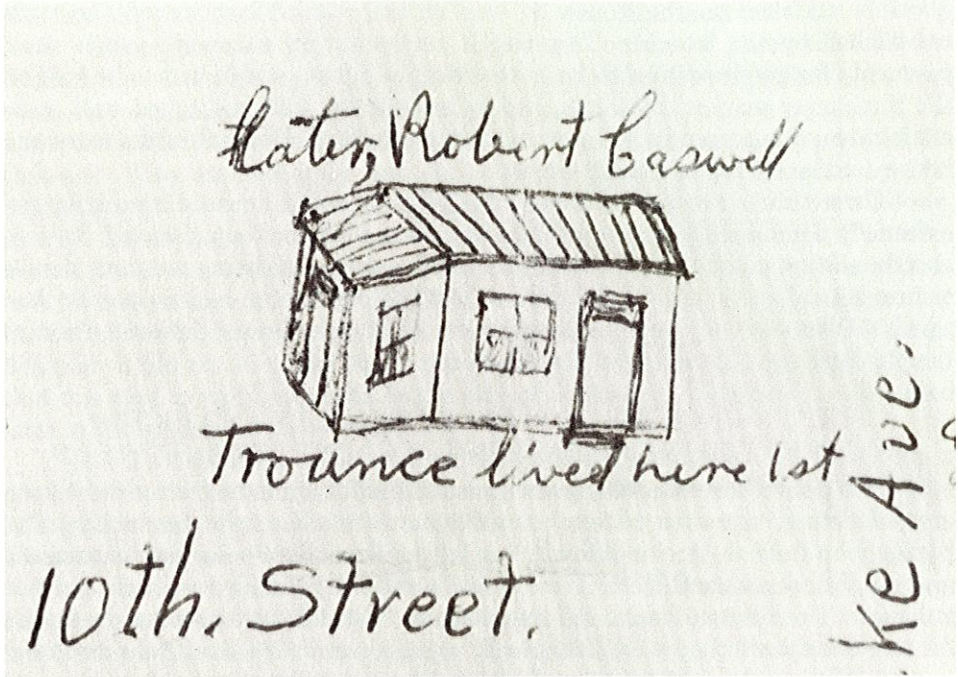 Later, Robert Caswell
Trounce lived here 1st
10th. Street.
ke Ave.